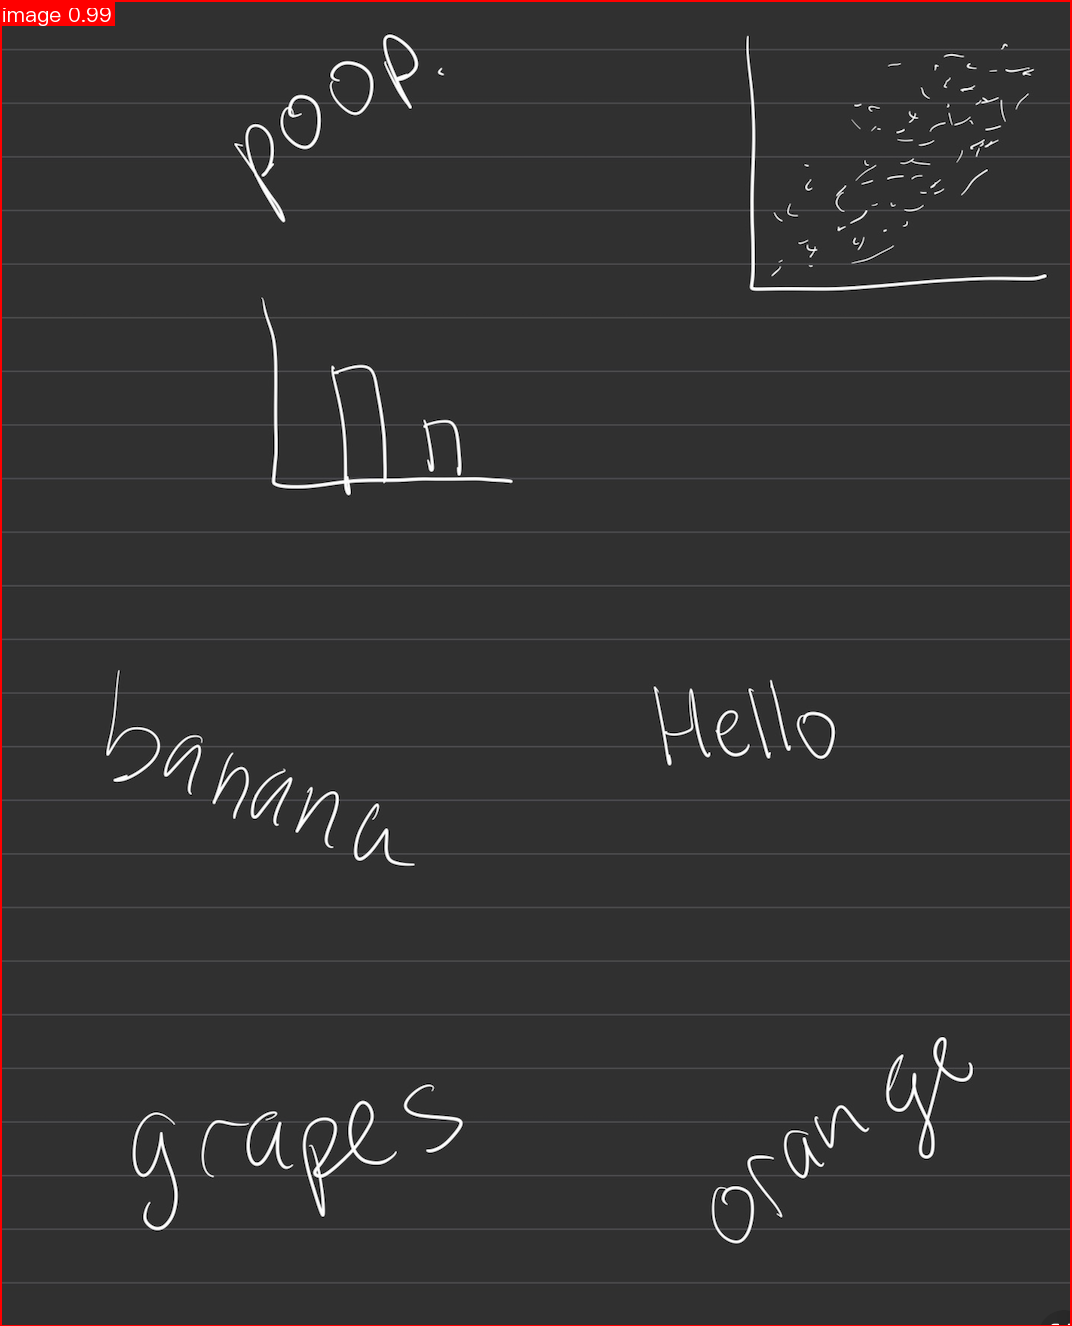 image 0.99
poop.
banana
Hello
grapes
orange